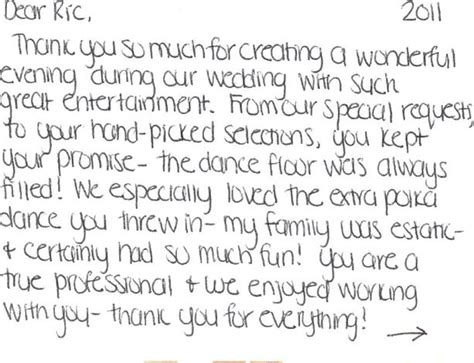 Dear Ric, 2011
Thank you so much for creating a wonderful
evening during our wedding with such
great entertainment. From our special requests,
to your hand-picked selections, you kept
your promise- the dance floor was always
filled! We especially loved the extra polka
dance you threw in- my family was estatic-
& certainly had so much fun! You are a
true professional & we enjoyed working
with you- thank you for everything! →